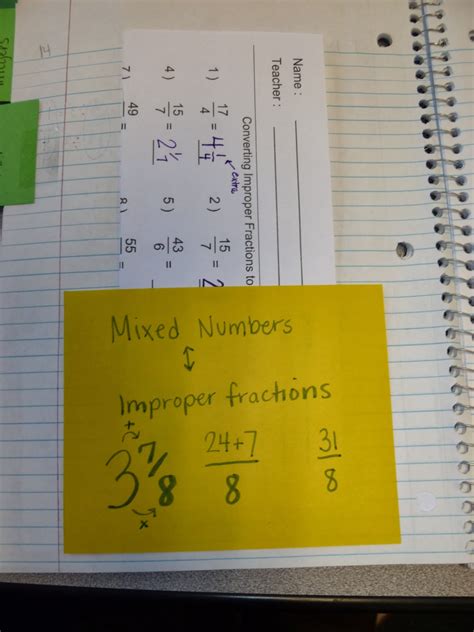 Name :
Teacher :
Converting Improper Fractions to
1) 17/4 = 4 1/4 extra 2) 15/7 = 2
4) 15/7 = 2 1/7 5) 43/6 =
7) 49 = 8) 55 =
Mixed Numbers
↕
Improper fractions
+
3 7/8 24+7/8 31/8
x